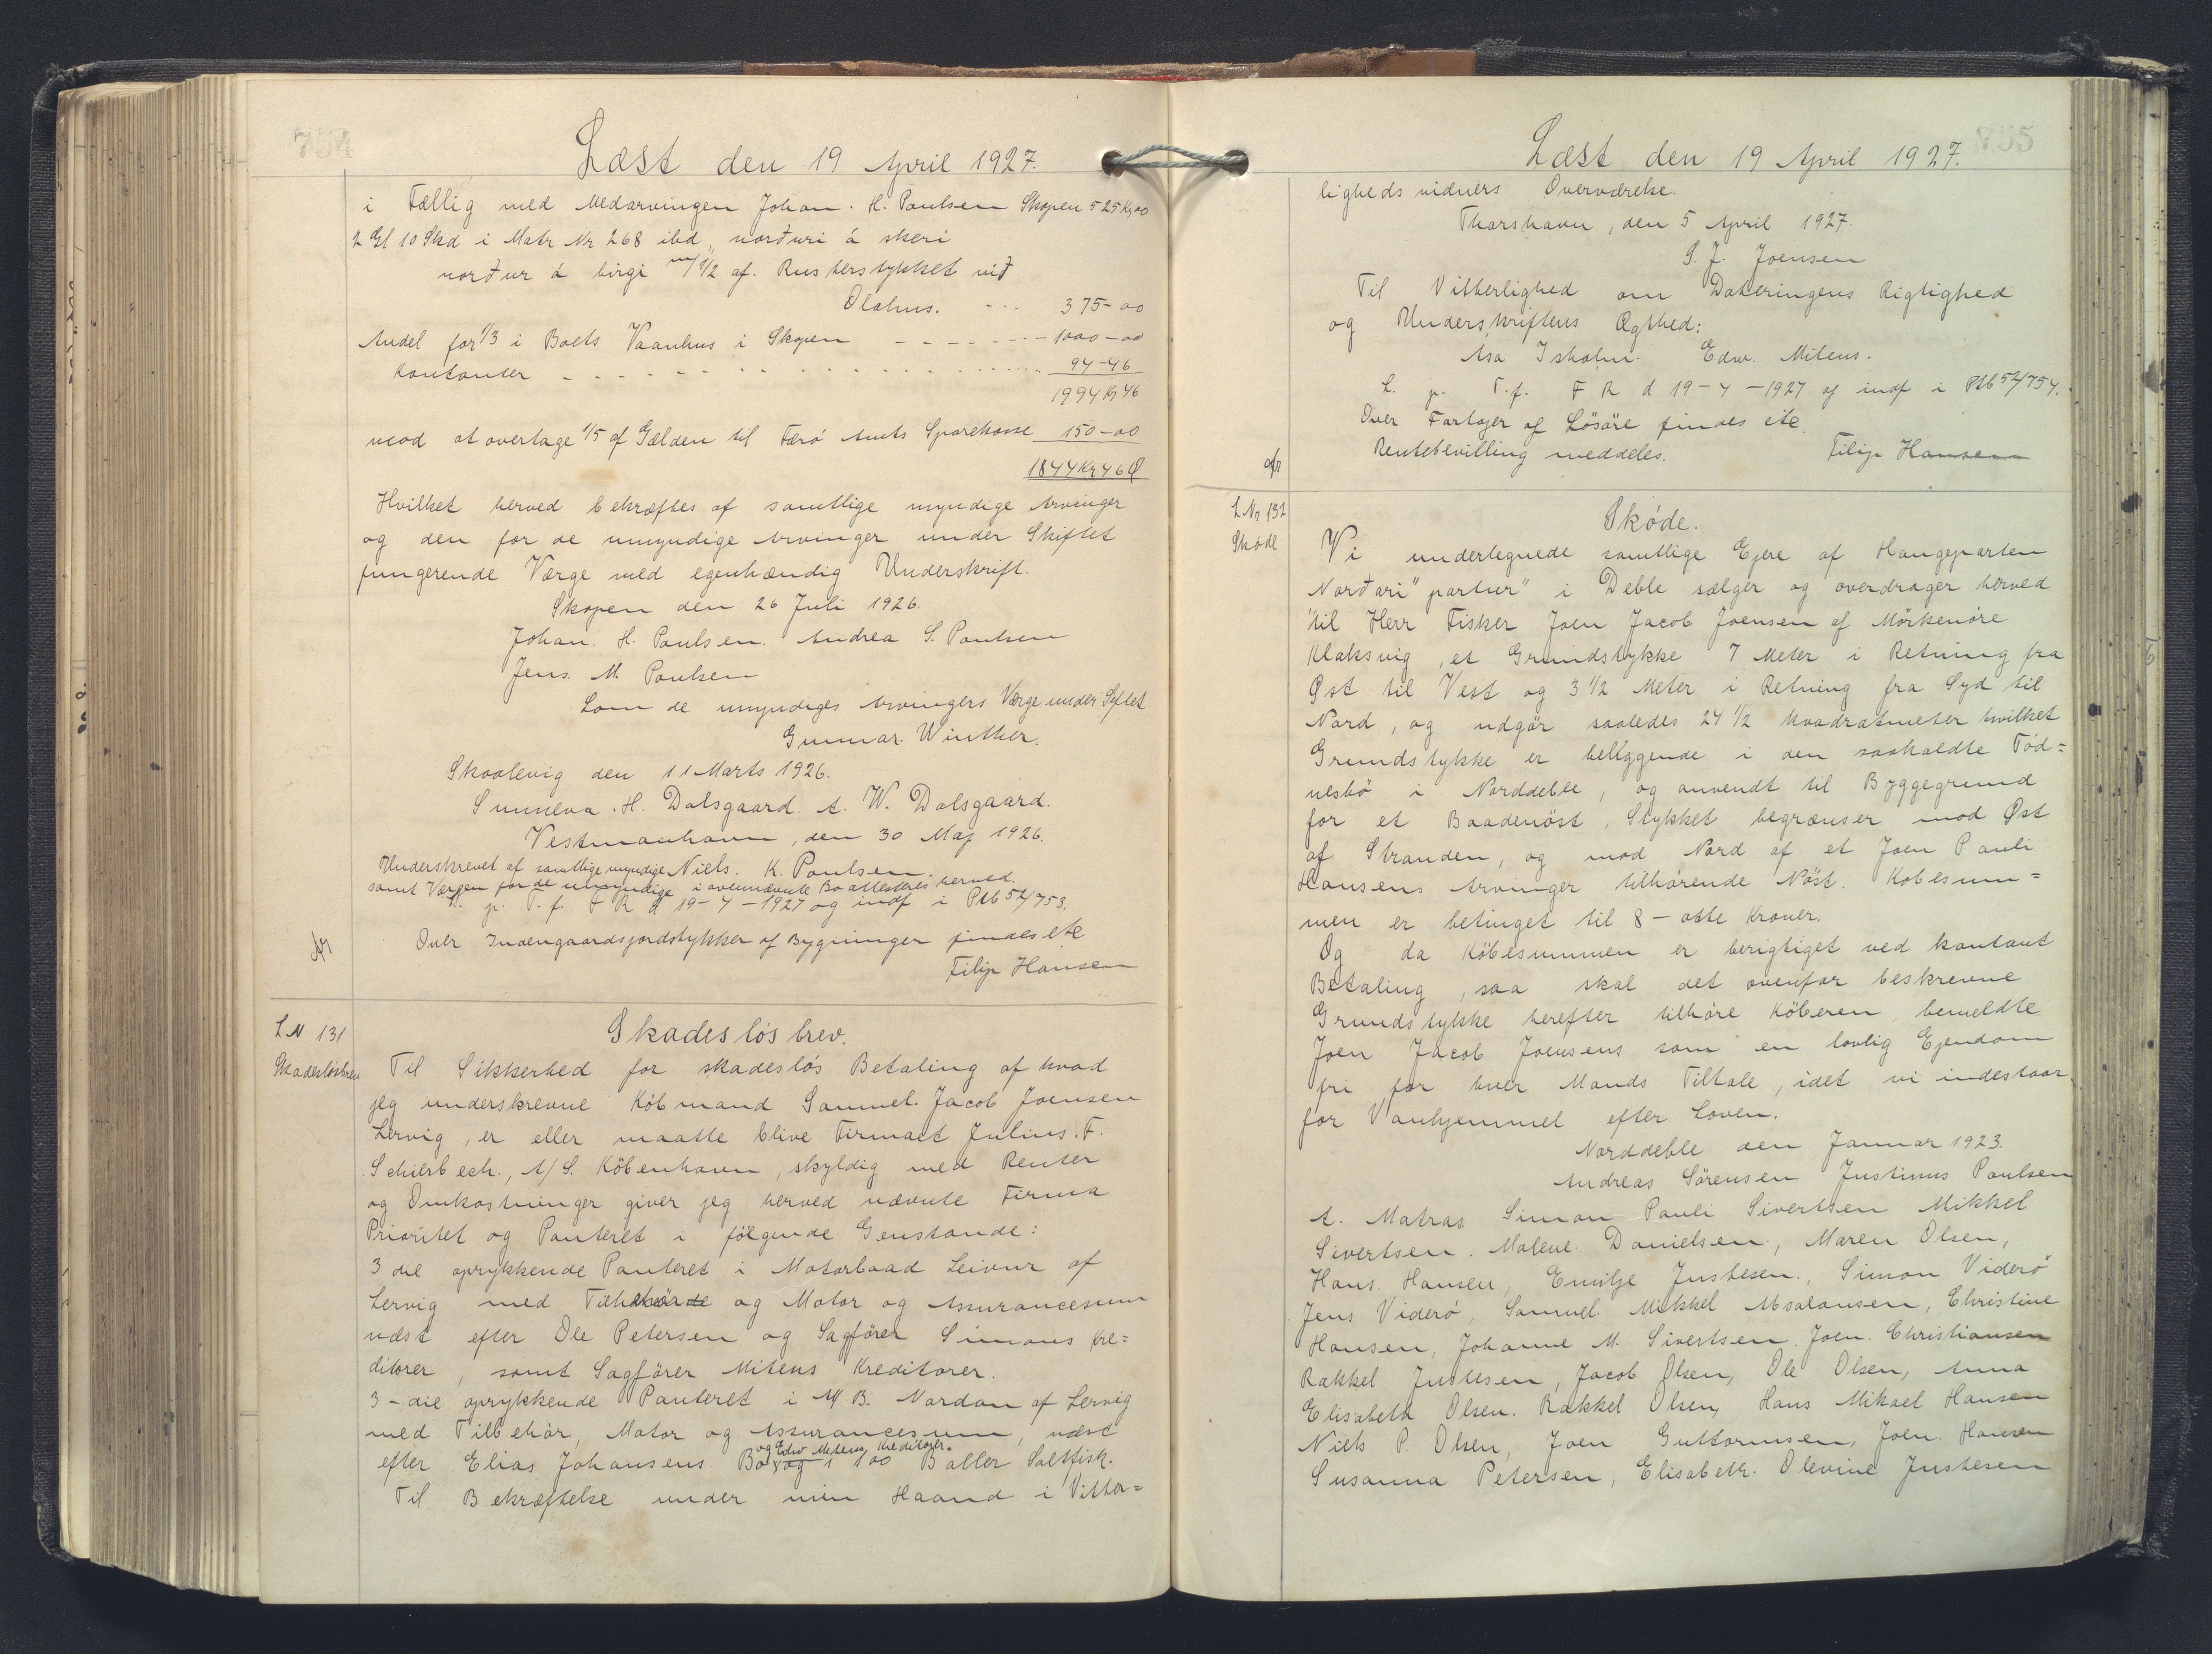 754
Læst den 19 April 1927.
i Fællig med Medarvingen Johan. H. Poulsen Skopen 525 Kr 00
2 Gl 10 Skd i Matr Nr 268 ibd „ norðuri á skeri
norður á birgi m/ 1/2 af. Rusterstykket við
Olahus. - - - 375-00
Andel for 1/3 i Boets Vaanhus i Skopen - - - - - - - 1000-00
Kontanter - - - - - - - - - - - - 94-46
1994 Kr 46
mod at overtage 1/5 af Gælden til Færø Amts Sparekasse 150-00
1844 Kr 46 Ø
Hvilket herved bekræftes af samtlige myndige Arvinger
og den for de umyndige Arvinger under Skiftet
fungerende Værge med egenhændig Underskrift.
Skopen den 26 Juli 1926.
Johan. H. Poulsen. Andrea S. Poulsen
Jens. M. Poulsen
Som de umyndiges Arvingers Værge under Syftet
Gunnar Winther.
Skaalevig den 11 Marts 1926.
Sunneva. H. Dalsgaard. A. W. Dalsgaard.
Vestmanhavn, den 30 Maj 1926.
Niels. K. Poulsen.
Underskrevet af samtlige myndige
samt Værgen for de umyndige i ovennævnte Bo attesteres herved.
L. p. T. f. F R d 19-4-1927 og indf i Ptb 52/753.
Over Indengaardsjordstykker og Bygninger findes ete
Filip Hansen
L N 131
Skadesløsbrev
Skadesløsbrev.
Til Sikkerhed for skadesløs Betaling af hvad
jeg underskrevne Købmand Sammel. Jacob Joensen
Lervig, er eller maatte blive Firmaet Julius. F.
Schierbech., A/S. København, skyldig med Renter
og Omkostninger giver jeg herved nævnte Firma
Prioritet og Panteret i følgende Genstande:
3 die oprykkende Panteret i Motorbaad Leivur af
Lervig med Tilbehör og Motor og Assurancesum
næst efter Ole Petersen og Sagfører Simons Kre=
ditorer, samt Sagfører Mitens Kreditorer.
3-die oprykkende Panteret i M/B. Nordan af Lervig
med Tilbehör, Motor og Assurancesum, næst
og Edw Mitens Kreditorer.
efter Elias Johansens Bo, og i 100 Baller Saltfisk.
Til Bekræftelse under min Haand i Vitter=
755
Læst den 19 April 1927.
ligheds vidners Overværelse.
Thorshavn, den 5 April 1927.
S. J. Joensen
Til Vitterlighed om Dateringens Rigtighed
og Underskriftens Ægthed:
Asa Isholm. Edw. Mitens.
L. p. T. f. F R d 19-4-1927 og indf i Ptb 52/754.
Over Fartøjer og Løsøre findes ete
Rentebevilling meddeles. Filip Hansen
L Nr 132
Skøde
Skøde.
Vi undertegnede samtlige Ejere af Haugeparten
„Norðari partur" i Deble sælger og overdrager herved
til Herr Fisker Joen Jacob Joensen af Mörkenöre
Klaksvig, et Grundstykke 7 Meter i Retning fra
Øst til Vest og 3 1/2 Meter i Retning fra Syd til
Nord, og udgør saaledes 24 1/2 Kvadratmeter hvilket
Grundstykke er beliggende i den saakaldte Tød=
nesbø i Norddeble, og anvendt til Byggegrund
for et Baadenöst, Stykket begrænser mod Øst
af Stranden, og mod Nord af et Joen Pauli
Hansens Arvinger tilhørende Nöst. Købesum=
men er betinget til 8 - otte Kroner.
Og da Købesummen er berigtiget ved kontant
Betaling, saa skal det ovenfor beskrevne
Grundstykke herefter tilhøre Køberen bemeldte
Joen Jacob Joensens som en lovlig Ejendom
fri for hver Mands Tiltale, idet vi indestaar
for Vanhjemmel efter Loven.
Norddeble den Januar 1923.
Andreas Sørensen Justinus Poulsen
A. Matras Simon Pauli Sivertsen Mikkel
Sivertsen. Malene. Danielsen., Maren Olsen,
Hans. Hansen, Emilje Justesen., Simon Viderø
Jens Viderø, Sammel Mikkel Absalonsen, Christine
Hansen, Johanne M. Sivertsen. Joen. Christiansen
Rakkel Justesen, Jacob Olsen, Ole Olsen, Anna
Elisabeth Olsen. Rakkel Olsen, Hans Mikael Hansen
Niels P. Olsen, Joen Guttormsen, Joen. Hansen
Susanna Petersen, Elisabeth. Olevine Justesen